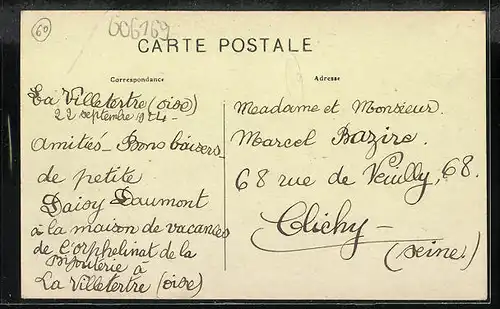 60
606169
CARTE POSTALE
Correspondance
La Villetertre (oise)
22 septembre 1924-
amitiés_ Bons baisers_
de petite
Daisy Daumont
à la maison de vacances
de l'orphelinat de la
Bijouterie à
La Villetertre (oise)
Adresse
Meadame et Monsieur.
Marcel Bazire.
68 rue de Neuilly, 68.
Clichy
(seine)